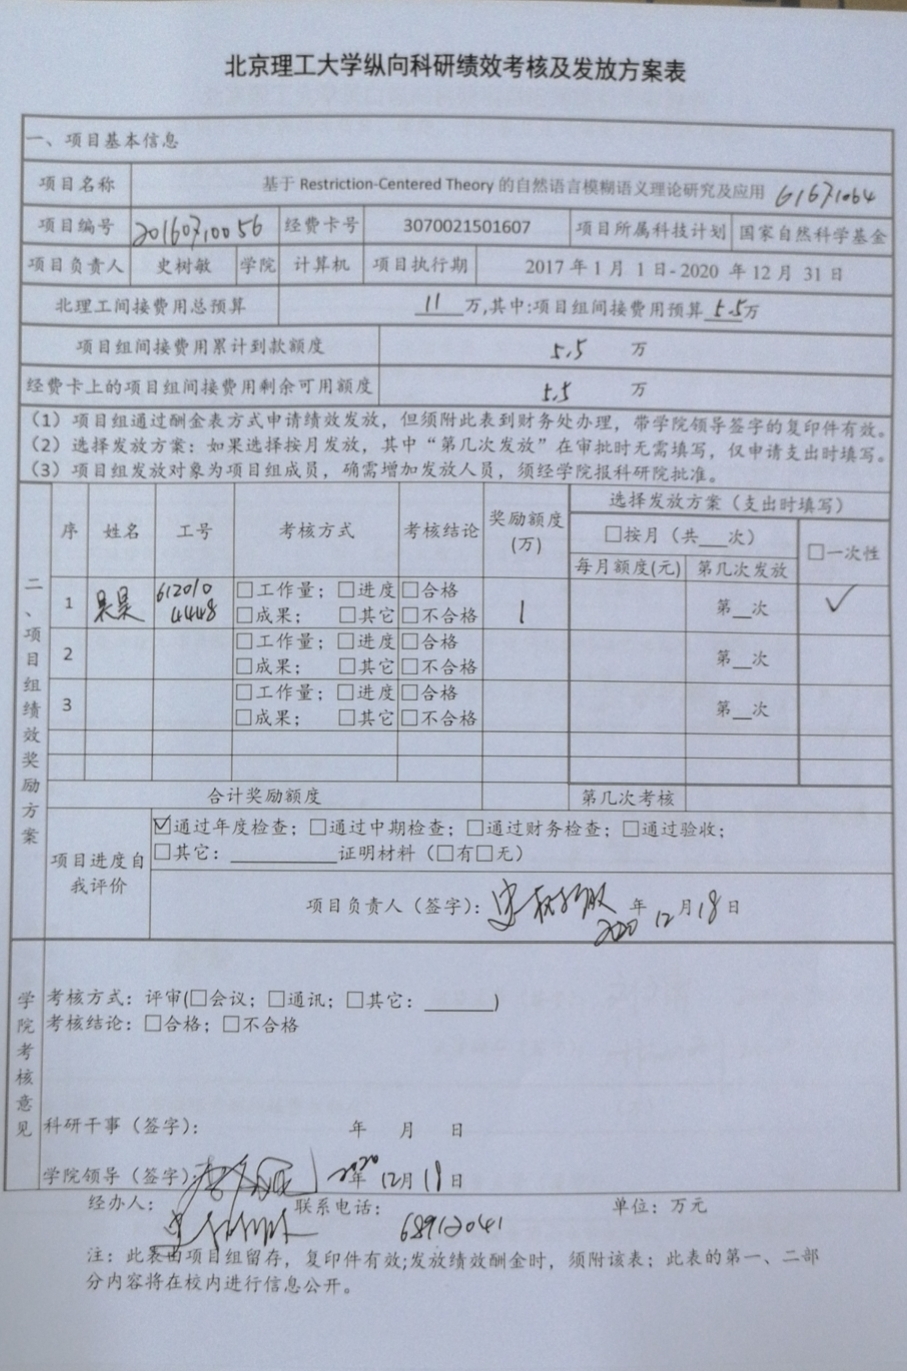 北京理工大学纵向科研绩效考核及发放方案表
一、项目基本信息
项目名称 基于 Restriction-Centered Theory 的自然语言模糊语义理论研究及应用 61671064
项目编号 20160710056 经费卡号 3070021501607 项目所属科技计划 国家自然科学基金
项目负责人 史树敏 学院 计算机 项目执行期 2017 年 1 月 1 日- 2020 年 12 月 31 日
北理工间接费用总预算 11 万,其中:项目组间接费用预算 5.5 万
项目组间接费用累计到款额度 5.5 万
经费卡上的项目组间接费用剩余可用额度 5.5 万
（1）项目组通过酬金表方式申请绩效发放，但须附此表到财务处办理，带学院领导签字的复印件有效。
（2）选择发放方案：如果选择按月发放，其中“第几次发放”在审批时无需填写，仅申请支出时填写。
（3）项目组发放对象为项目组成员，确需增加发放人员，须经学院报科研院批准。
二、项目组绩效奖励方案
序 姓名 工号 考核方式 考核结论 奖励额度(万) 选择发放方案（支出时填写）
□按月（共__次） □一次性
每月额度(元) 第几次发放
1 6120104448 □工作量；□进度 □合格 1 第__次 ✓
□成果； □其它 □不合格
2 □工作量；□进度 □合格 第__次
□成果； □其它 □不合格
3 □工作量；□进度 □合格 第__次
□成果； □其它 □不合格
合计奖励额度 第几次考核
项目进度自我评价
☑通过年度检查；□通过中期检查；□通过财务检查；□通过验收；
□其它：________证明材料（□有□无）
项目负责人（签字）：史树敏 2020 年 12 月 18 日
学院考核意见
考核方式：评审(□会议；□通讯；□其它：______)
考核结论：□合格；□不合格
科研干事（签字）： 年 月 日
学院领导（签字）： 2020 年 12 月 18 日
经办人：史树敏 联系电话：68912041 单位：万元
注：此表由项目组留存，复印件有效;发放绩效酬金时，须附该表；此表的第一、二部
分内容将在校内进行信息公开。